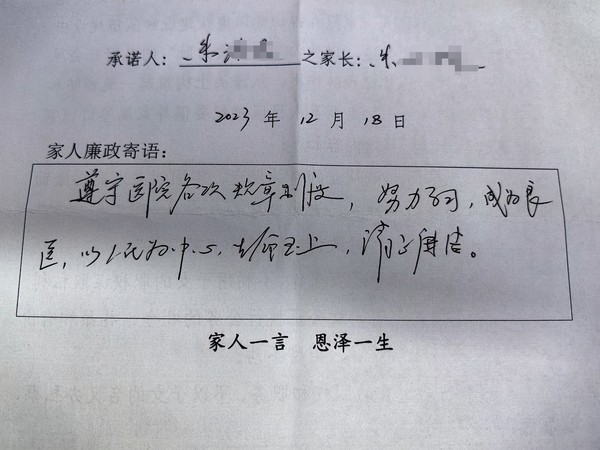 承诺人：朱 之家长：朱
2023 年 12 月 18 日
家人廉政寄语：
遵守医院各次规章制度，努力学习，成为良
医，以人民为中心，生命至上，清正廉洁。
家人一言 恩泽一生